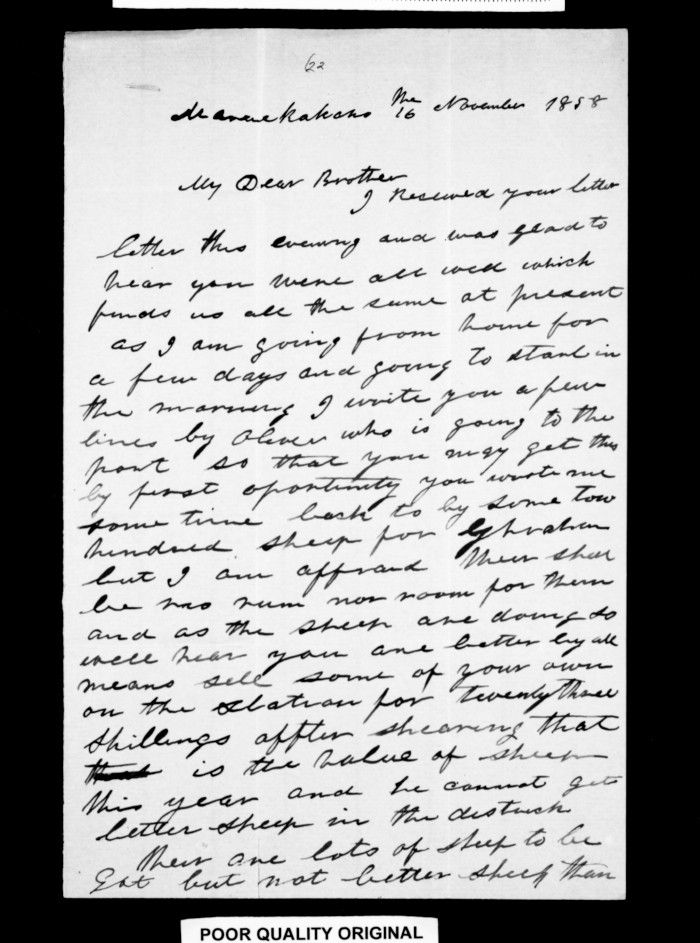 622
Maraekakaho the 16 November 1858
My Dear Brother
I Reseived your letter
letter this evening and was glad to
hear you were all well which
finds us all the same at present
as I am going from home for
a few days and going to start in
the morning I write you a few
lines by Oliver who is going to the
port so that you may get this
by first oportunity you wrote me
some time back to by some tow
hundred sheep for
but I am affraid their shall
be no rum nor room for them
and as the sheep are doing so
well hear you are better by all
means sell some of your own
on the Station for twenty three
Shillings affter shearing that
is the value of sheep
this year and he cannot get
better sheep in the destrick
their are lots of sheep to be
Got but not better sheep than
POOR QUALITY ORIGINAL